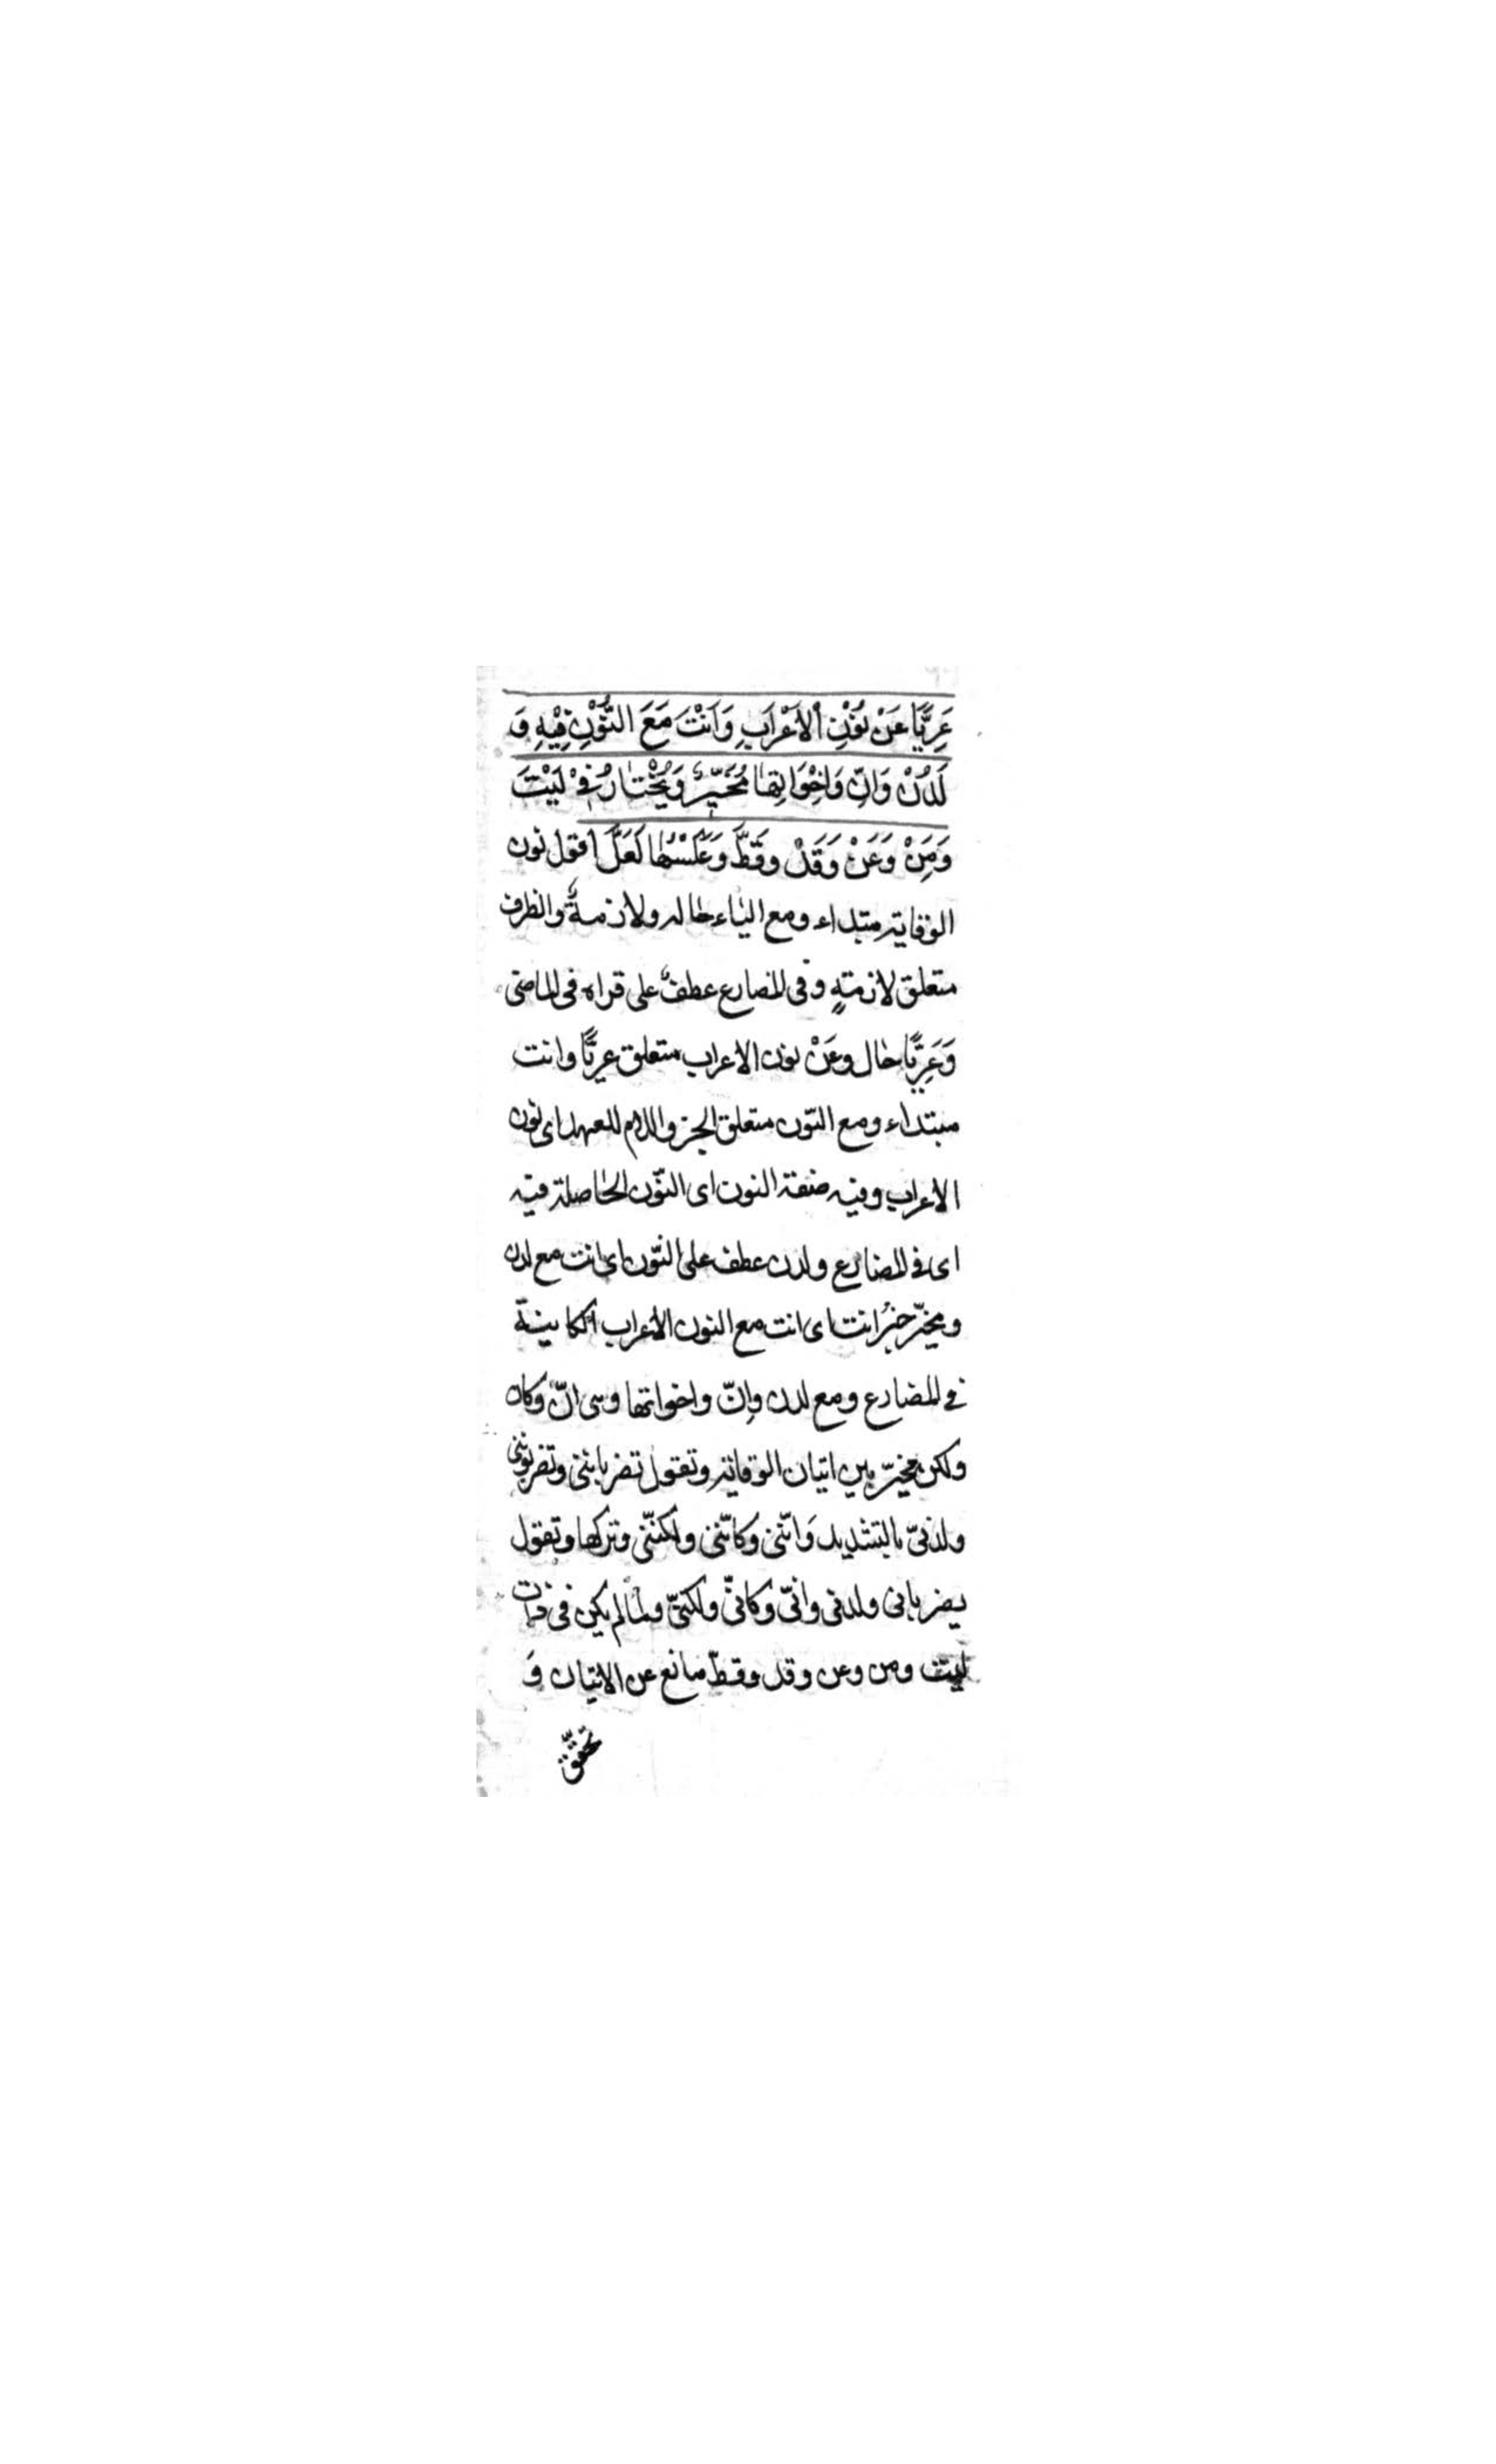 عَرِيًّا عَنْ نُوْنِ الْاَعْرَابِ وَاَنْتَ مَعَ النُّوْنِ فِيْهِ وَ
لَدُنْ وَاِنَّ وَاَخْوَاتِهَا مُخَيَّرٌ وَيُخْتَارُ فِيْ لَيْتَ
وَمِنْ وَعَنْ وَقَدْ وَقَطْ وَعَكْسُهَا لَعَلَّ اقول نون
الوقاية مبتداء ومع الياء حاله ولازمةٌ والظرف
متعلق لازمتهٍ وفى المضارع عطفٌ على قراه فى الماضى
وَعَرِيًّا حال وعَنْ نون الاعراب متعلق عريًّا وانت
مبتداء ومع النّون متعلق الخبر واللام للعهد اى نون
الاعراب وفيه صفة النون اى النّون الحاصلة فيه
اى فى المضارع ولدن عطف على النّون اى انت مع لدن
ومخيّر خبر انت اى انت مع النون الاعراب الكاينة
فى المضارع ومع لدن وانّ واخواتها وهى انّ وكان
ولكن مخيّر بين اتيان الوقاية وتقول تضرباننى وتضربوننى
ولدنّى بالتشديد وَانّنى وكانّنى ولكنّنى وتركها وتقول
يضربانى ولدنى وانّى وكانّى ولكنّى ولما لم يكن فى ذات
ليت ومن وعن وقد وقطّ مانع عن الاتيان وَ
تحقق